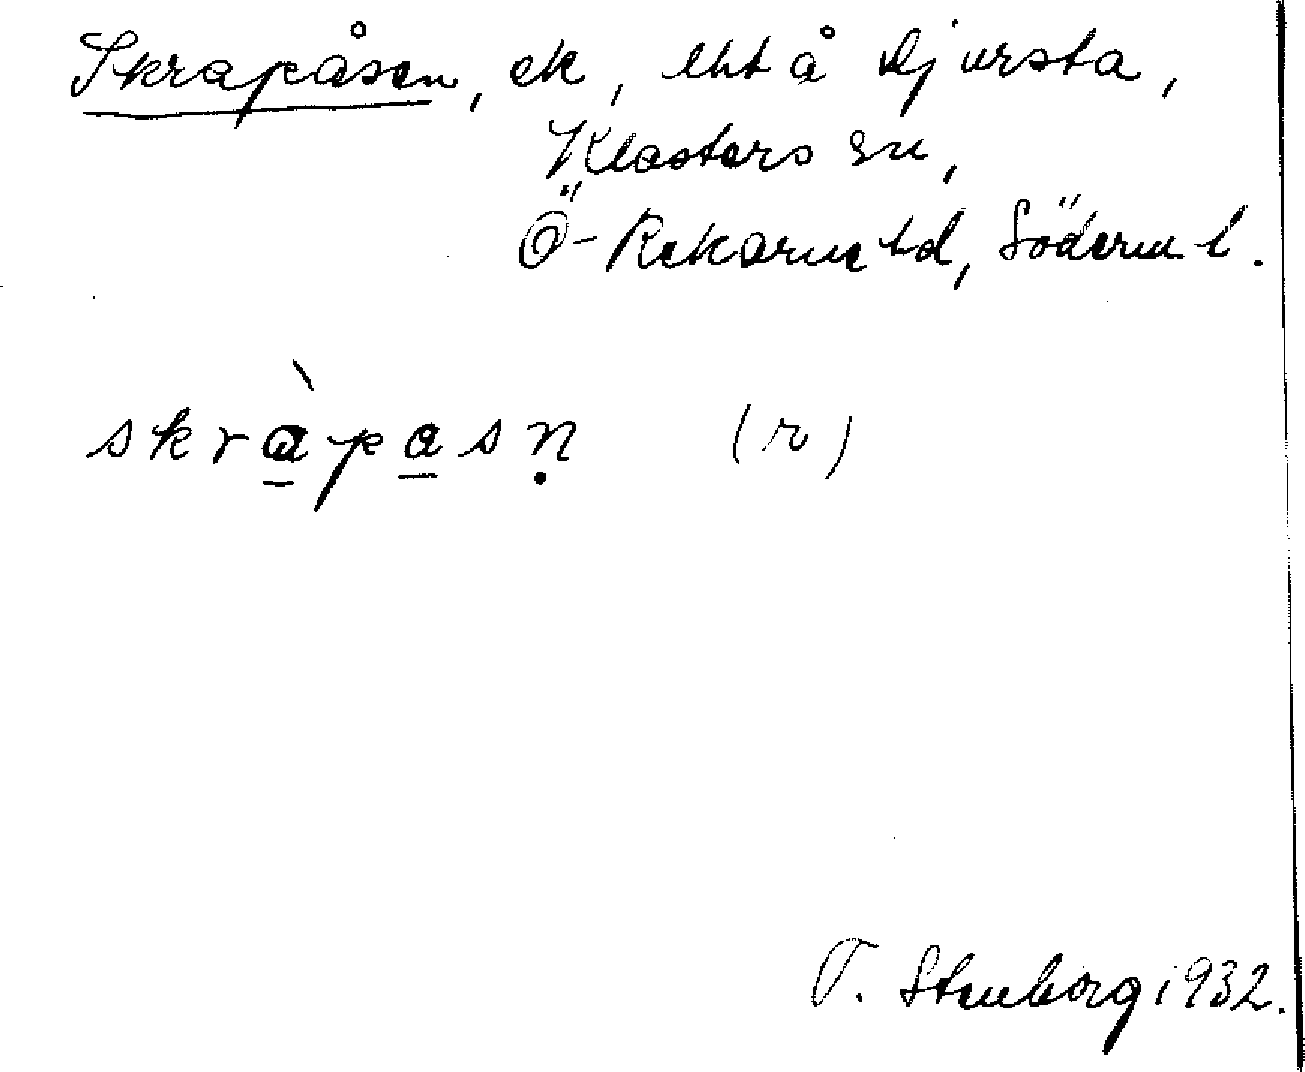 Skrapåsen, ek, lht å Djursta,
Klosters sn,
Ö-Rekarne hd, Söderml.
skràpasṇ (r)
T. Stenborg 1932.